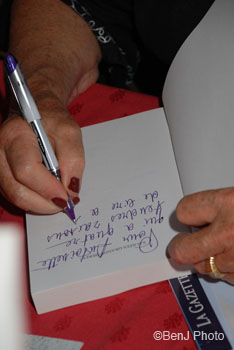 Pour Antoinette
qui a quatre
Tendres raisons
de lire a
LA GAZETTE
©BenJ Photo